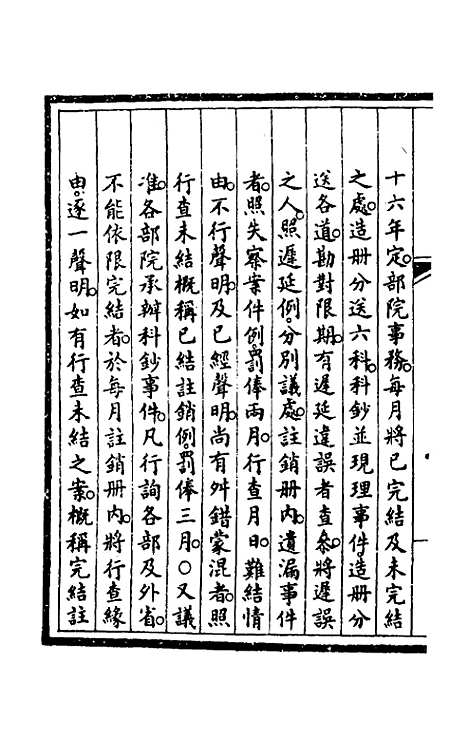 十六年定。部院事務。每月將已完結及未完結
之處。造冊分送六科。科鈔並現理事件。造冊分
送各道。勘對限期。有遲延違誤者查參。將遲誤
之人。照遲延例。分別議處。註銷冊內。遺漏事件
者。照失察案件例。罰俸兩月。行查月日。難結情
由。不行聲明。及已經聲明。尚有舛錯蒙混者。照
行查未結概稱已結註銷例。罰俸三月。〇又議
准。各部院承辦科鈔事件。凡行詢各部及外省。
不能依限完結者。於每月註銷冊內。將行查緣
由。逐一聲明。如有行查未結之案。概稱完結註